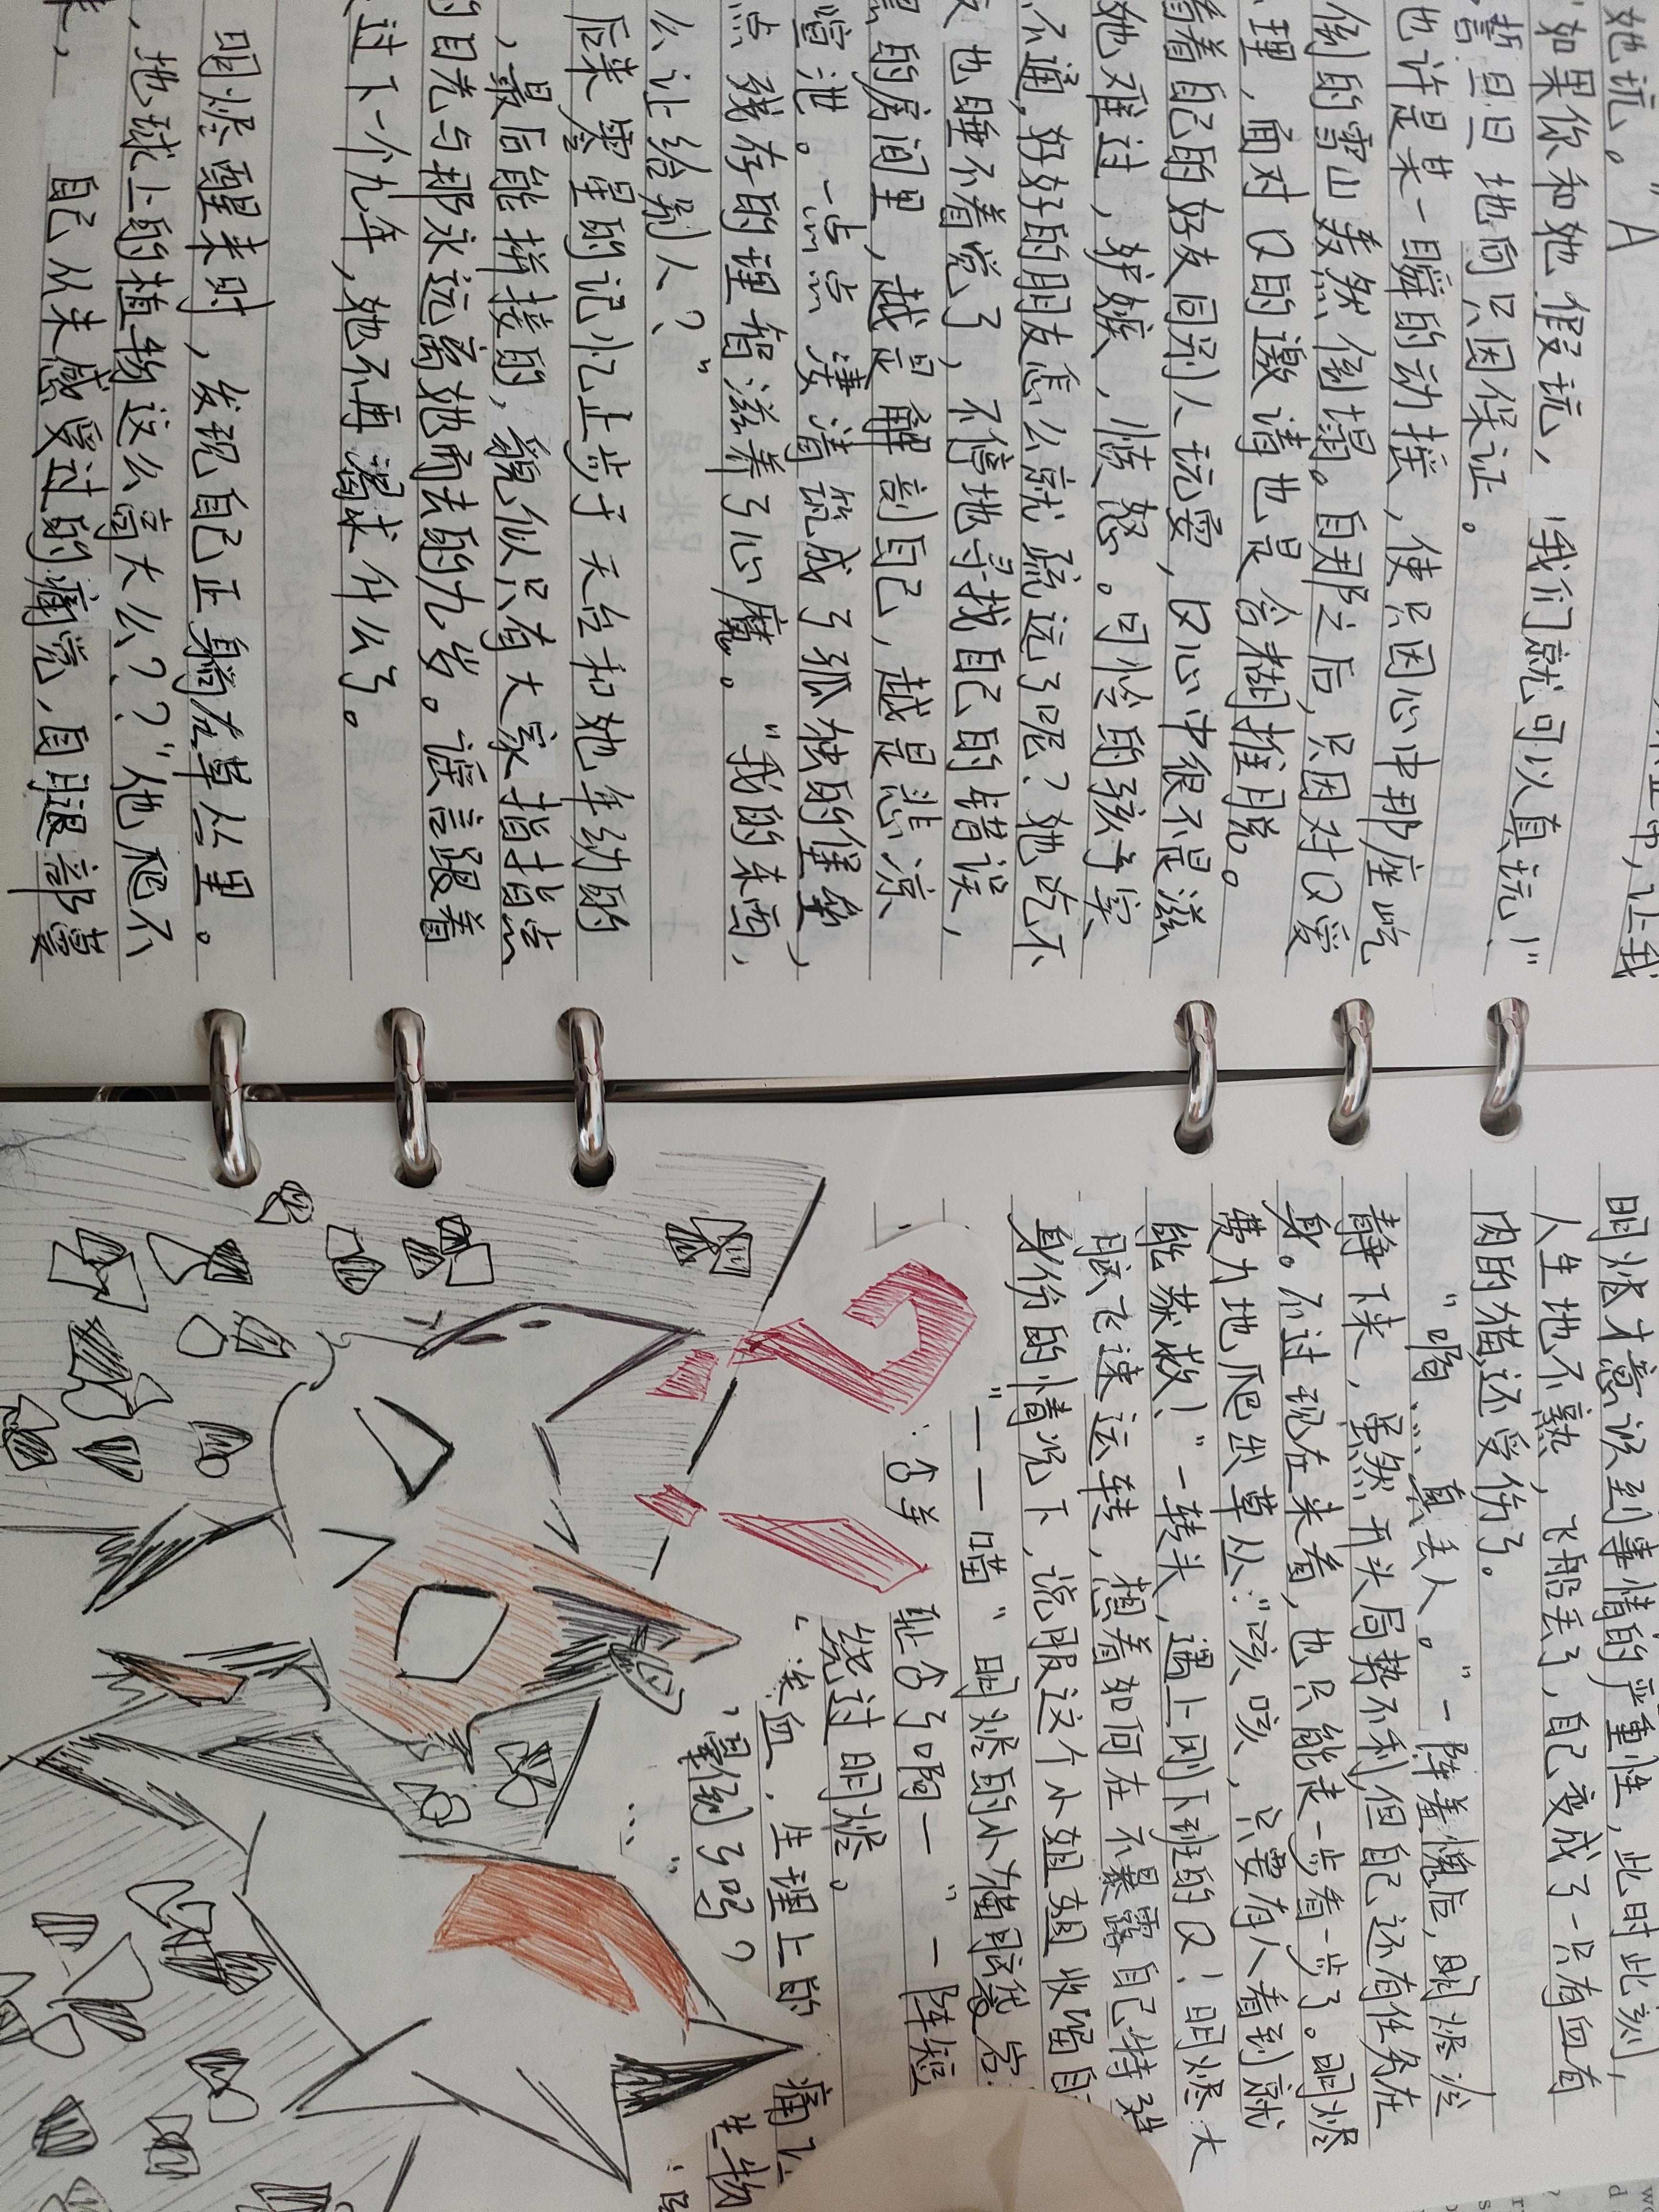 业中，让我
她玩。”A
如果你和她假玩，我们就可以真玩！”
誓旦旦地向只因保证。
也许是某一瞬的动摇，使只因心中那座屹
倒的雪山轰然倒塌。自那之后，只因对Q爱
理，面对Q的邀请也是含糊推脱。
着着自己的好友同别人玩耍，Q心中很不是滋
她难过，嫉妒，愤怒。可怜的孩子实
不通，好好的朋友怎么就疏远了呢？她吃不
也睡不着觉了，不停地寻找自己的错误，
的房间里，越是解剖自己，越是悲凉
管泄。一点点凄清筑成了孤独的堡垒，
点残存的理智滋养了心魔。“我的东西，
么让给别人？”
后来霁星的记忆止步于天台和她年幼的
，最后能拼接的，貌似只有大家指指点
的目光与那永远离她而去的九岁。谎言跟着
过下一个九年，她不再渴求什么了。
明烬醒来时，发现自己正躺在草丛里。
，地球上的植物这么高大么？？”他爬不
来，自己从未感受过的痛觉，自腿部蔓
明烬才意识到事情的严重性，此时此刻，
人生地不熟，飞船丢了，自己变成了一只有血有
肉的猫还受伤了。
“嘶……真丢人。”一阵羞愧后，明烬冷
静下来，虽然开头局势不利但自己还有任务在
身。不过现在来着，也只能走一步看一步了。明烬
费力地爬出草丛：“咳咳，只要有人看到就
能获救！”一转头，遇上刚下班的Q！明烬大
脑飞速运转，想着如何在不暴露自己特殊
身份的情况下，说服这个小姐姐收留自
“——喵”明烬的小猫脑袋宕
：宕羊
耻宕了啊—”一阵短
绕过明烬。
“失血，生理上的
，晕倒了吗？
……”
痛
生物